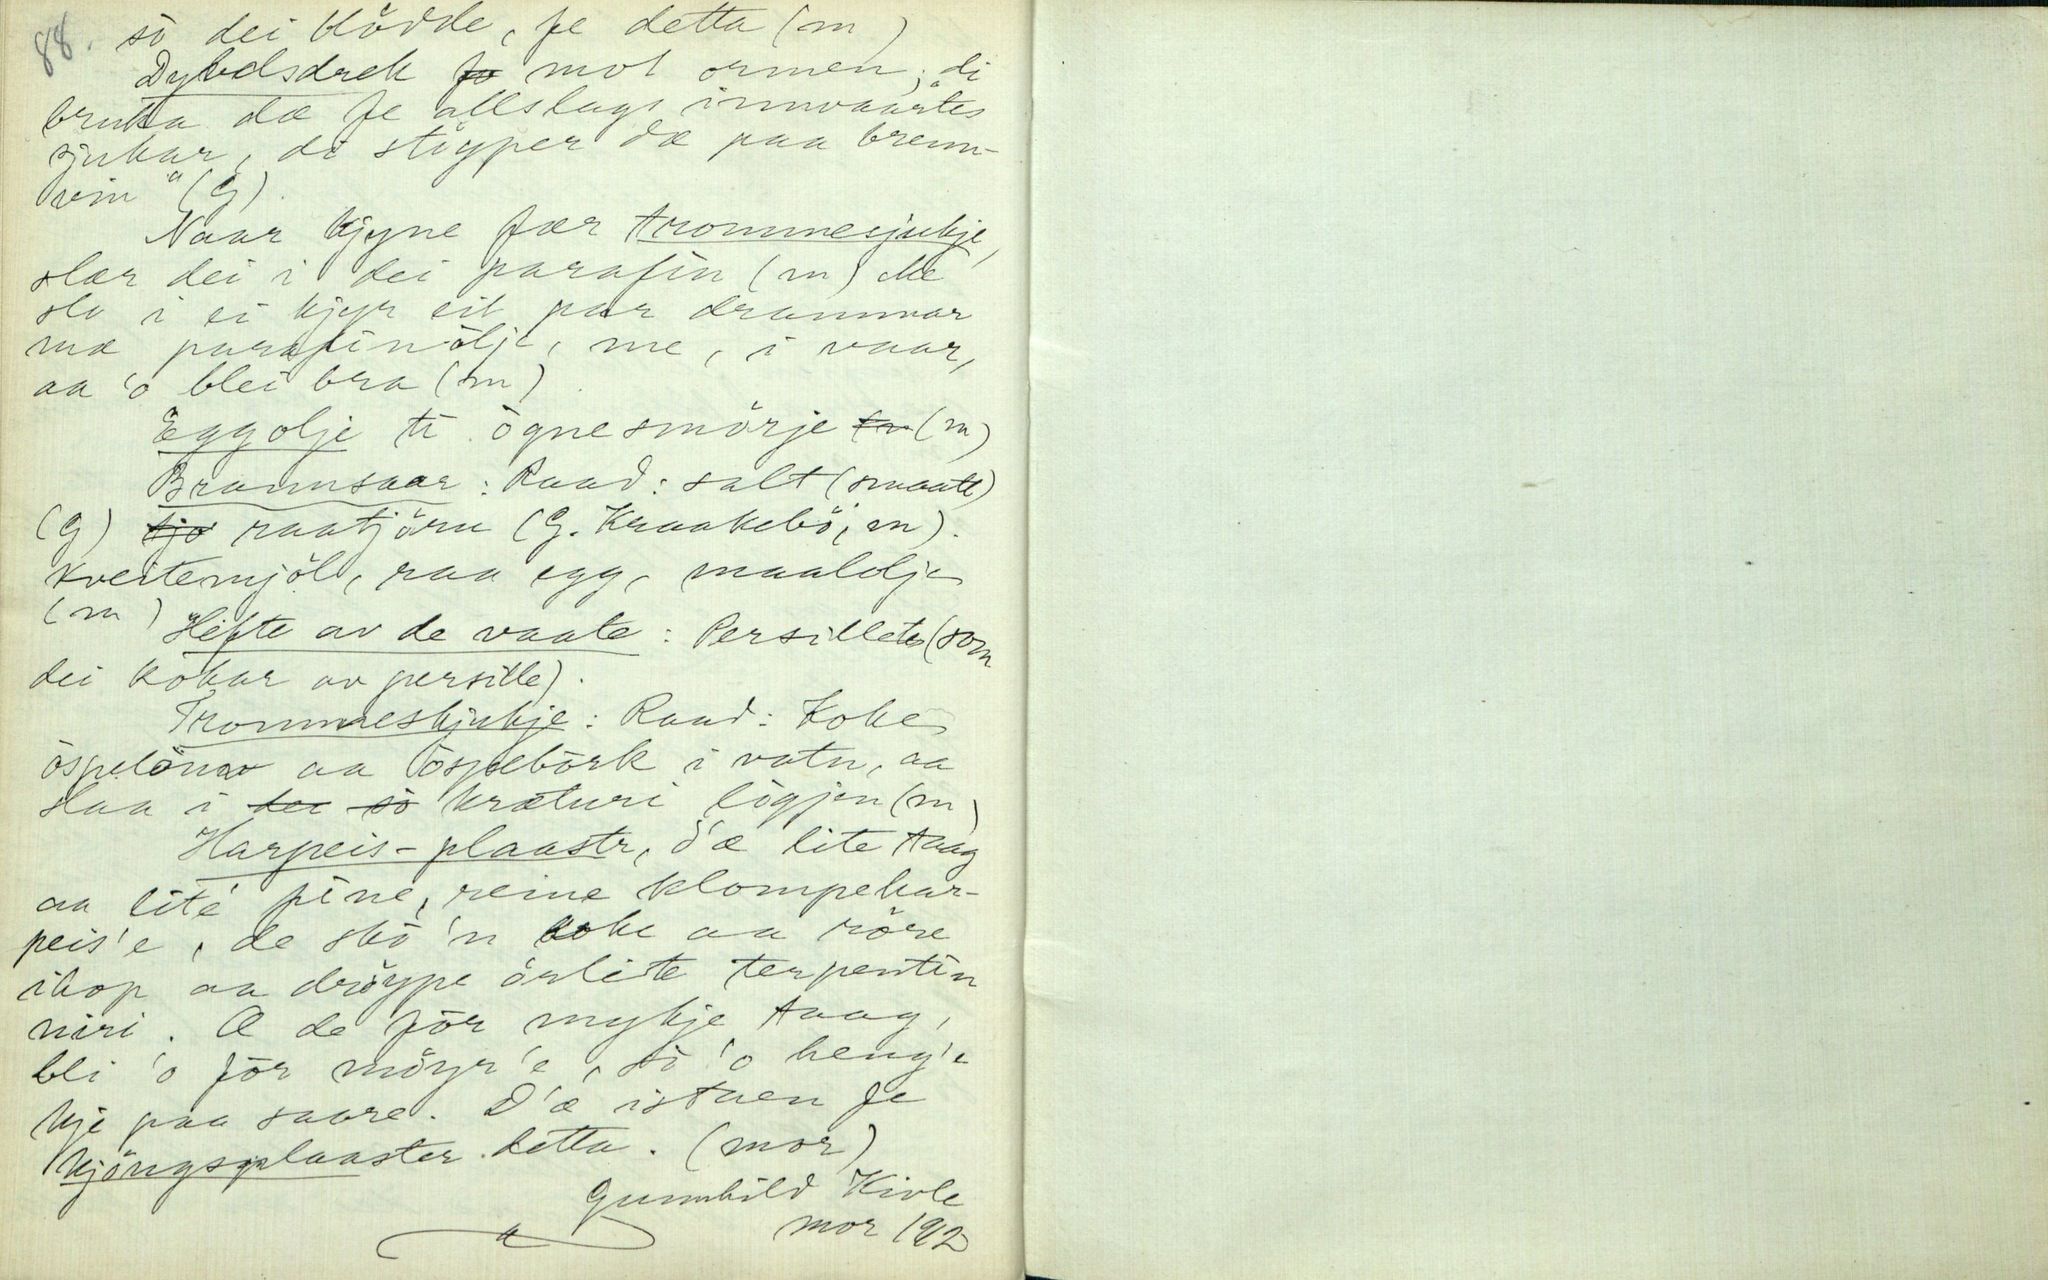 88. so dei klödde, fe detta (m)
Dybelsdrek fo mot ormen; di
bruka dæ fe allslags innvaartes
sjukar, di stöyper dæ paa brenn-
vin" (G).
Naar kjyne fær trommesjukje,
slær dei i dei parafin (m) Me
slo i ei kjyr eit par drammar
mæ parafinölje, me, i vaar,
aa 'o blei bra (m)
Eggolje ti ögnesmörje (m)
Brannsaar: Raad: salt (smaatt)
(G) tjö raatjöru (G. Kraakebö, m).
Kveitemjöl, raa egg, maalolje
(m)
Hefte av de vaate: Persillete (som
dei kokar av persille).
Trommeskjukje: Raad: Koke
öspelauv aa öspebork i vatn, aa
slaa i dei so kræturi lögjen (m)
Harpeis-plaastr, d'æ lite taag
aa lite' fine, reine klompehar-
peis'e, de sko 'n koke aa röre
ihop aa dröype örlite terpentin
niri. Æ de för mykje taag,
bli 'o för möyr'e, so 'o heng'e
kje paa saare. D'æ istaen fe
kjöngsplaaster detta. (mor)
Gunnhild Kivle
mor 1912